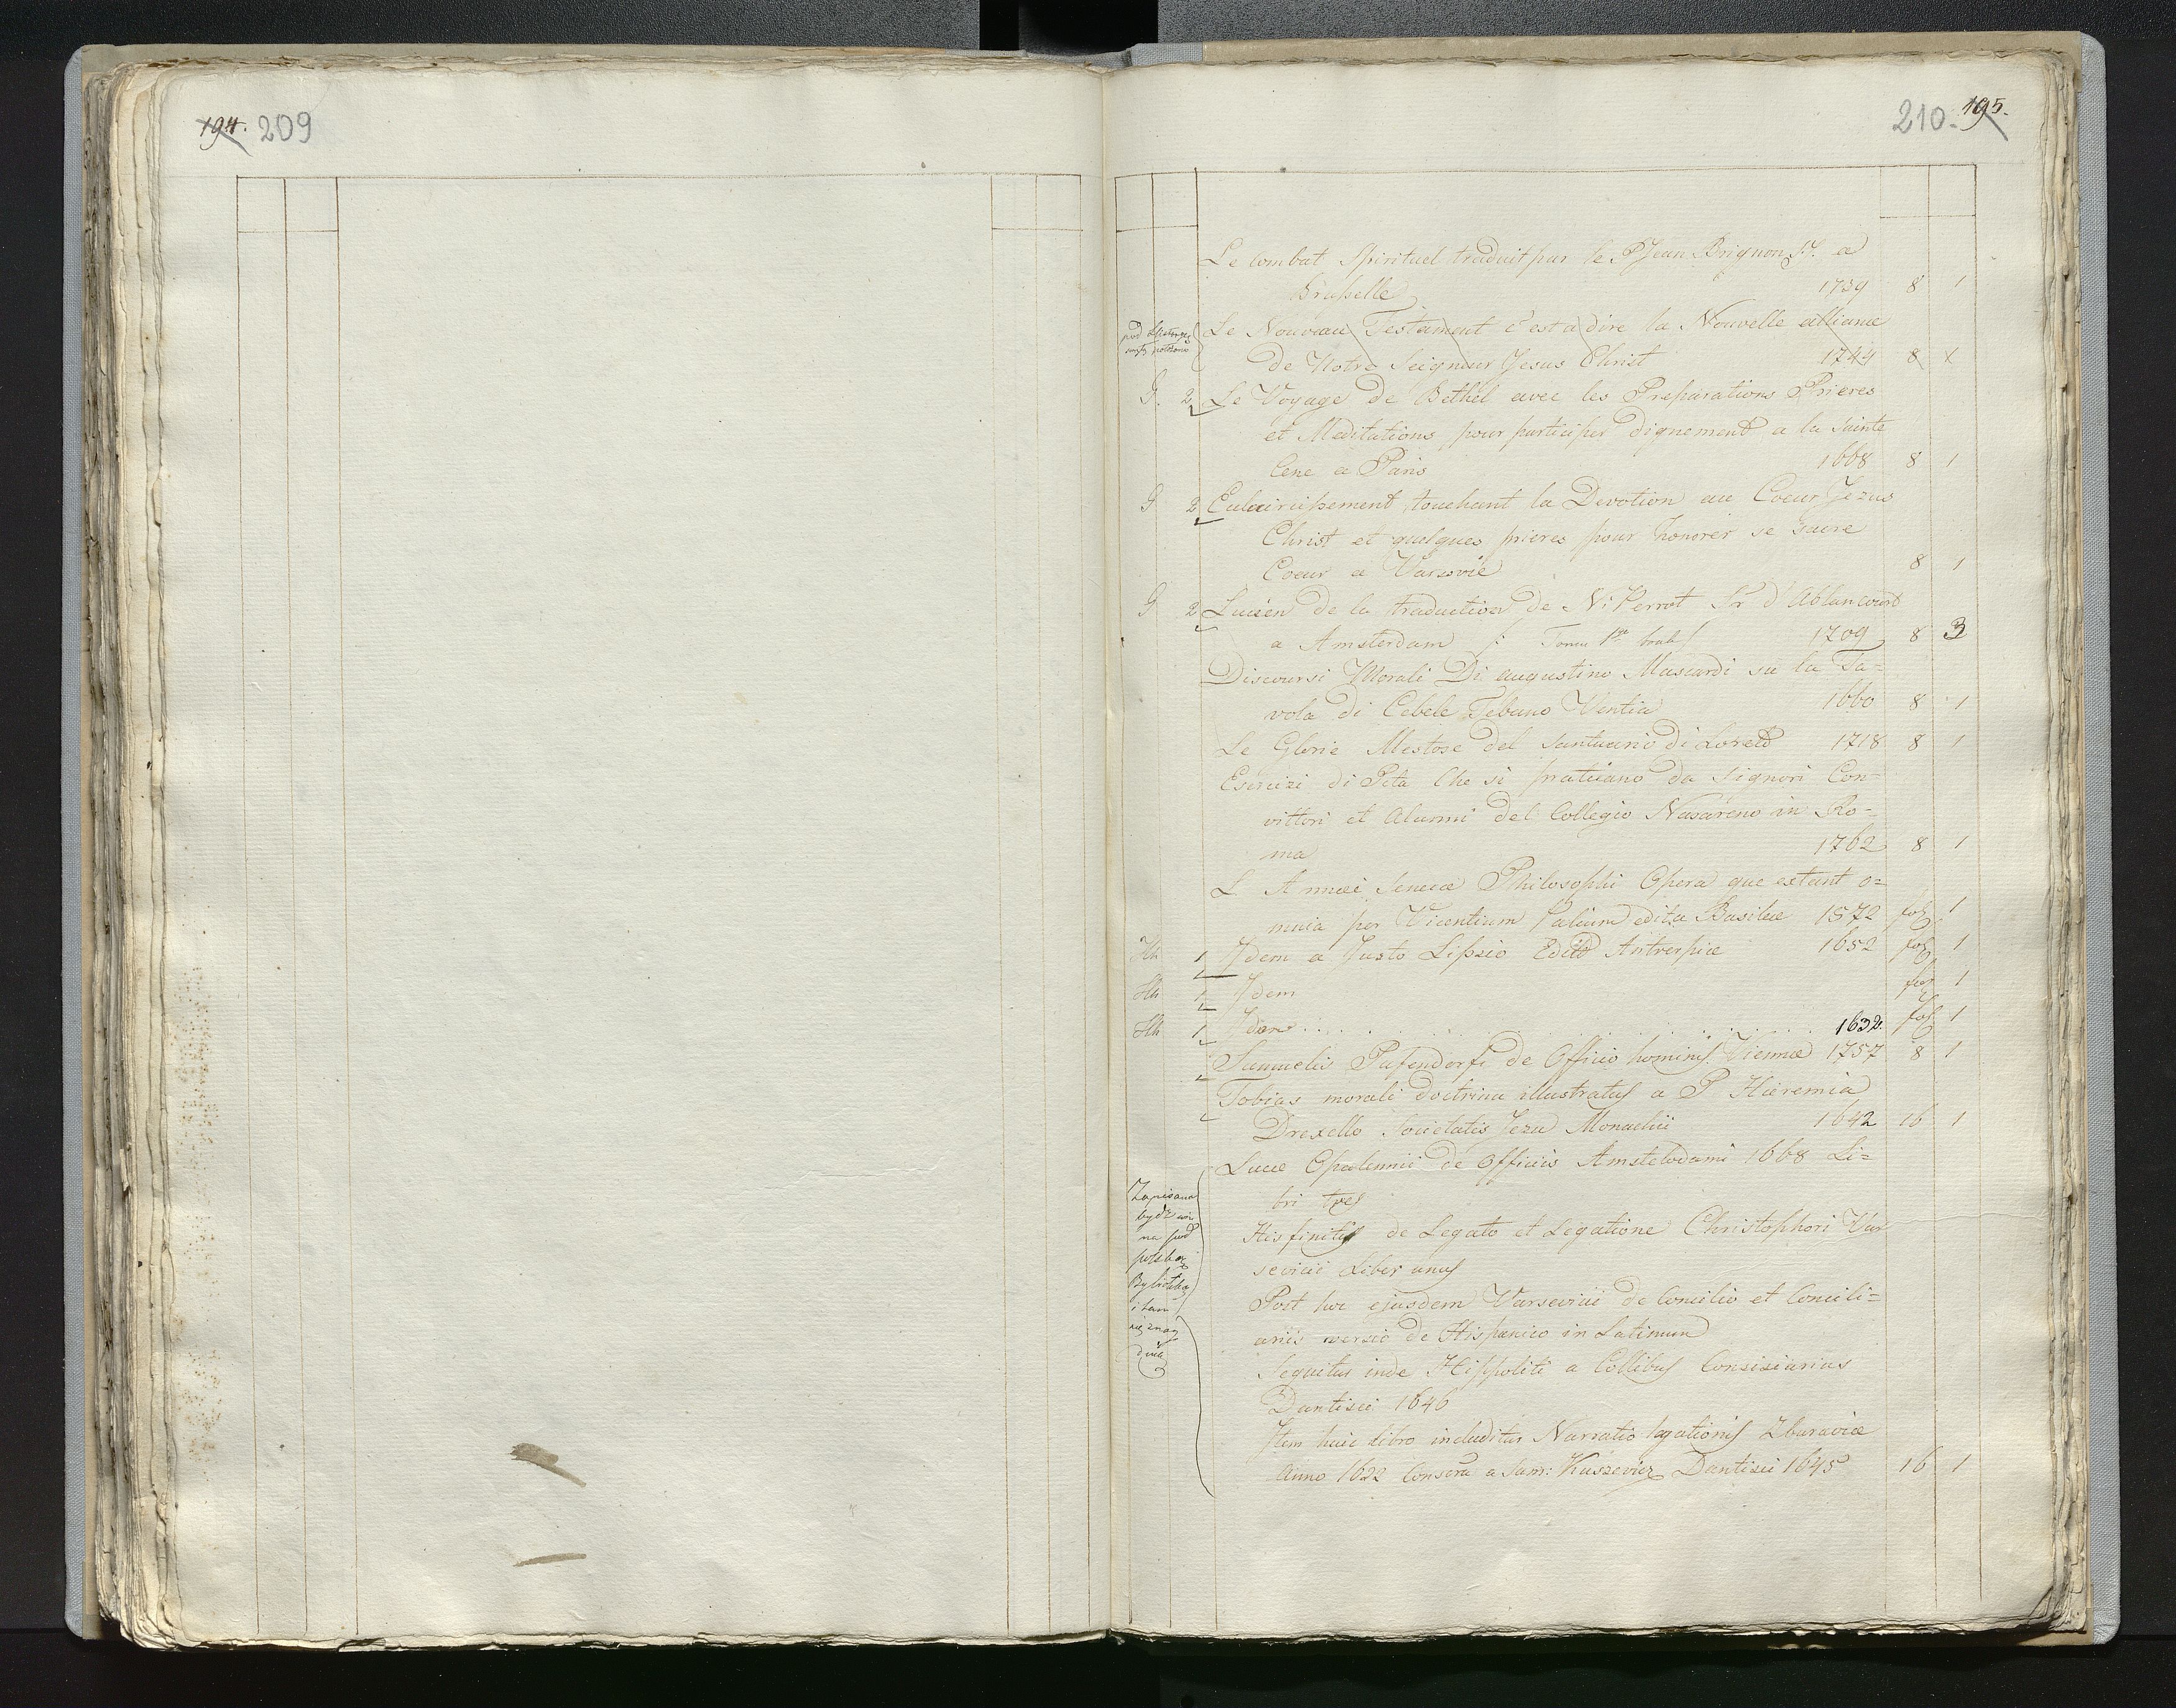 194. 209
210. 195.
Le Combat Spirituel traduit par le P Jean Brignon S.J. a
Bruxelle 1739 8 1
Le Nouveau Testament c'est a dire la Nouvelle alliance
de Notre Seigneur Jesus Christ 1744 8 x
G. 2 Le Voyage de Bethel avec les Preparations Prieres
et Meditations pour participer dignement a la Sainte
Cene a Paris 1668 8 1
G 2 Eclaircissement touchant la Devotion au Coeur Jezus
Christ et quelques prieres pour honorer se sacre
Coeur a Varsovie 8 1
G 2 Lucien de la traduction de N: Perrot Sr d'Ablancourt
a Amsterdam /: Tomu 1go brak / 1709 8 3
Discoursi Morali Di augustino Mascardi su la Ta=
vola di Cebele Tebano Ventia 1660 8 1
Le Glorie Mestose del Santuario di Loreto 1718 8 1
Esercizi di Pieta Che si praticano da Signori Con=
vittori et Alunni del Collegio Nasareno in Ro=
ma 1762 8 1
L Annaei Senecae Philosophi Opera que extant o=
mnia per Vicentium edita Basileae 1572 fol 1
Hh 1 Idem a Justo Lipsio Edito Antverpiae 1652 fol 1
Hh 1 Idem fol 1
Hh 1 Idem . . . . . . . . . . 1632. fol 1
Samuelis Pufendorfi de Officio hominis Viennae 1757 8 1
Tobias morali doctrina illustratus a P Hieremia
Drexello Societatis Jezu Monachii 1642 16 1
Lucae Opalennii de Officiis Amstelodami 1668 Li=
bri tres
His finitis de Legato et Legatione Christophori Var
sevicii Liber unus
Post hoc ejusdem Varsevicii de Concilio et Concili=
ariis versio de Hispanico in Latinum
Sequitur inde Hippoliti a Collibus Consiliarius
Dantisci 1646
Item huic libro includitur Narratio legationis Zbaraviae
Anno 1622 a Sam: Kuszevicz Dantisci 1645 16 1
Zapisana
bydź win
na pod
polską
Bybliotką
i tam
się znay
duie